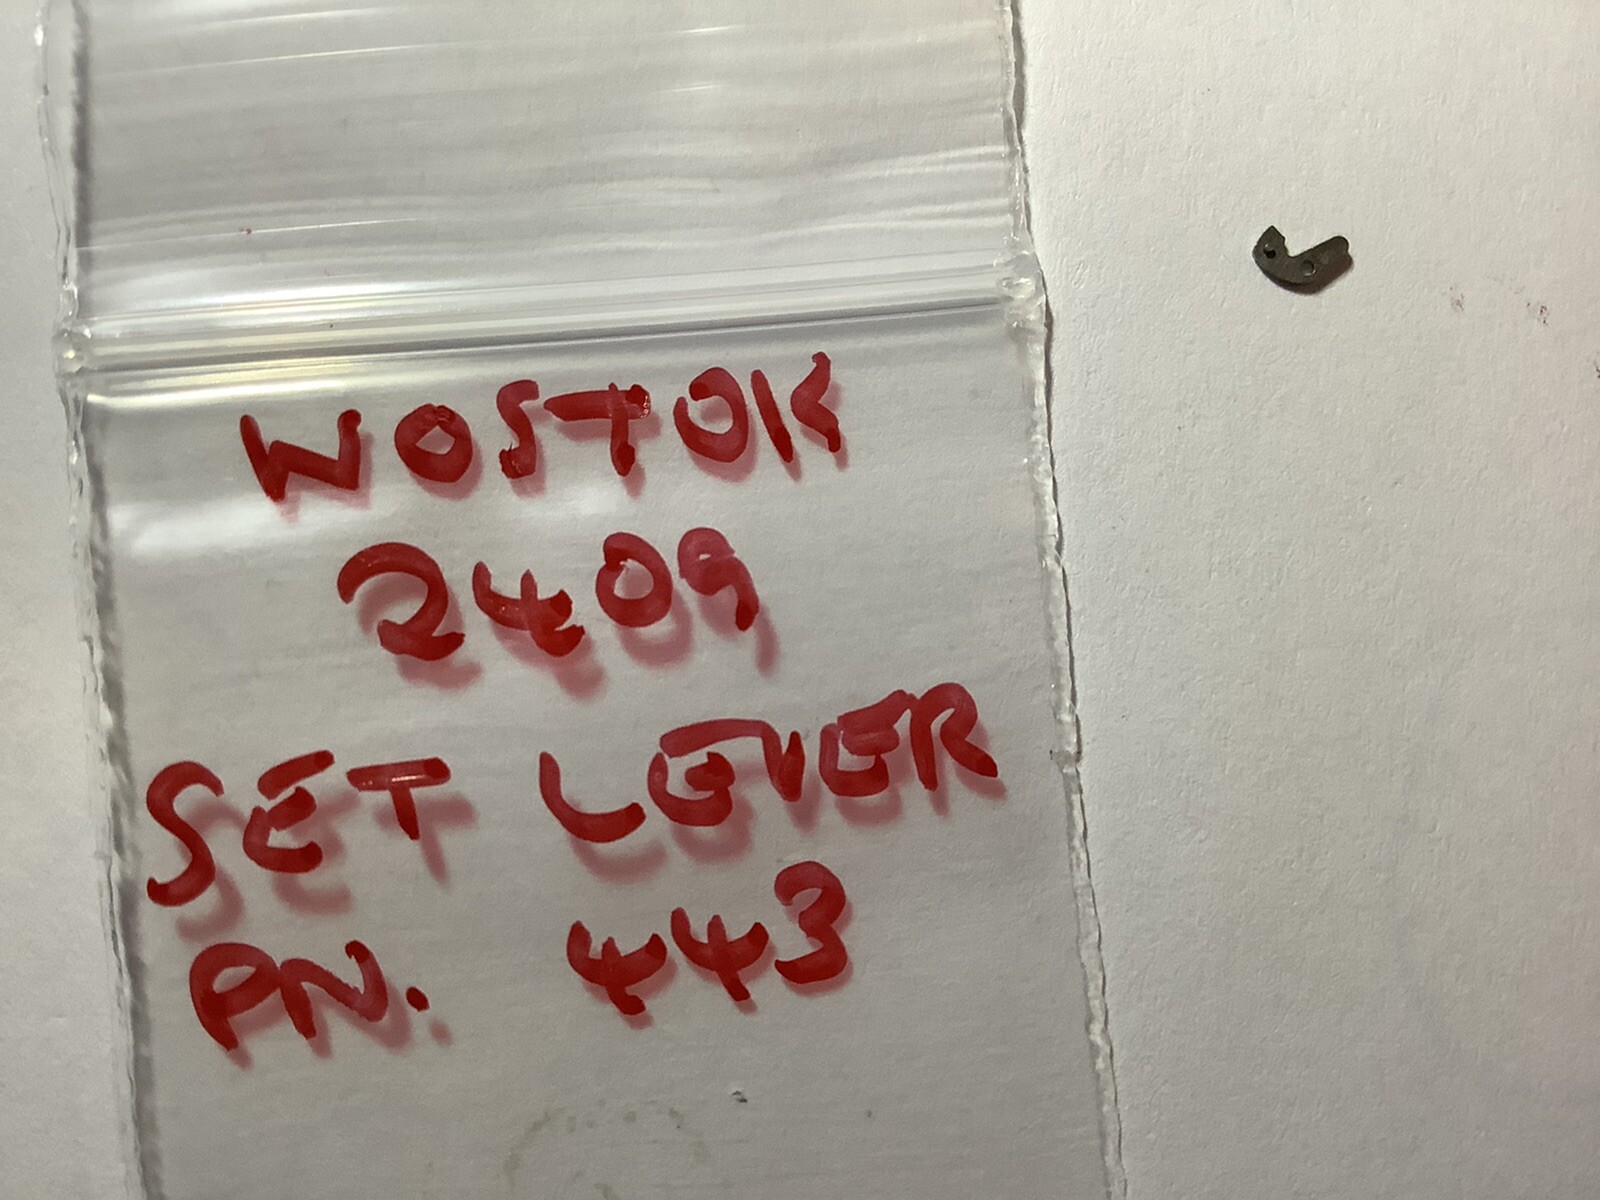 WOSTOK
2409
SET LEVER
PN. 443